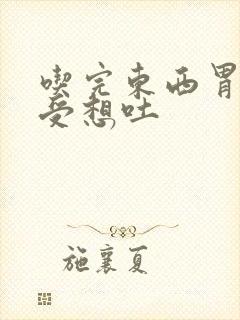 喫完東西胃
受想吐
施襄夏